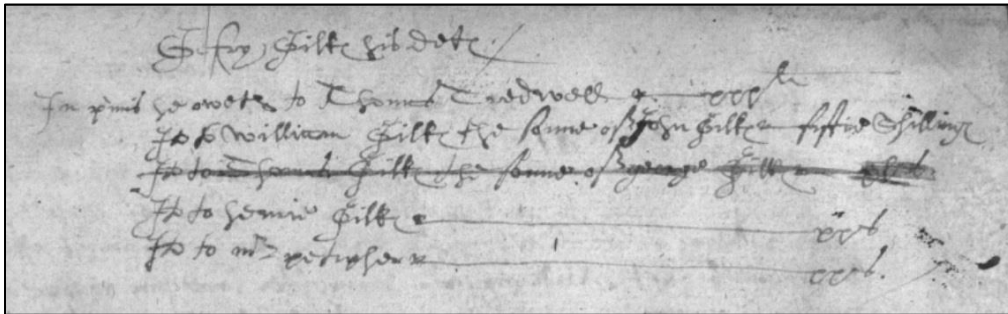 Gefry Gilkes his detes
In p'mis he oweth to Thomas Tredwell xxxs
Ite to William Gilkes the sonne of John Gilkes fiftie Shillings
Ite to Thomas Gilkes the sonne of george Gilkes
Ite to henrie Gilkes xxs
Ite to mr petipher xxs